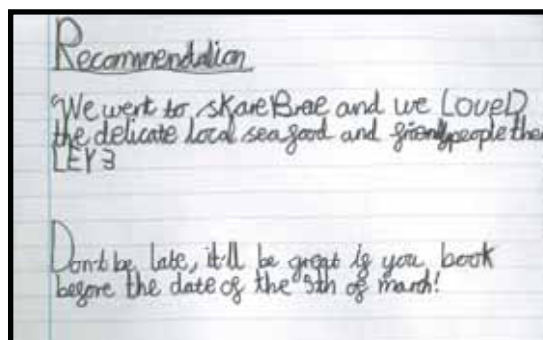 Recommendation
"We went to skareBrae and we LoveD
the delicate local seafood and people the
Don't be late, it'll be great if you book
before the date of the 9th of march!